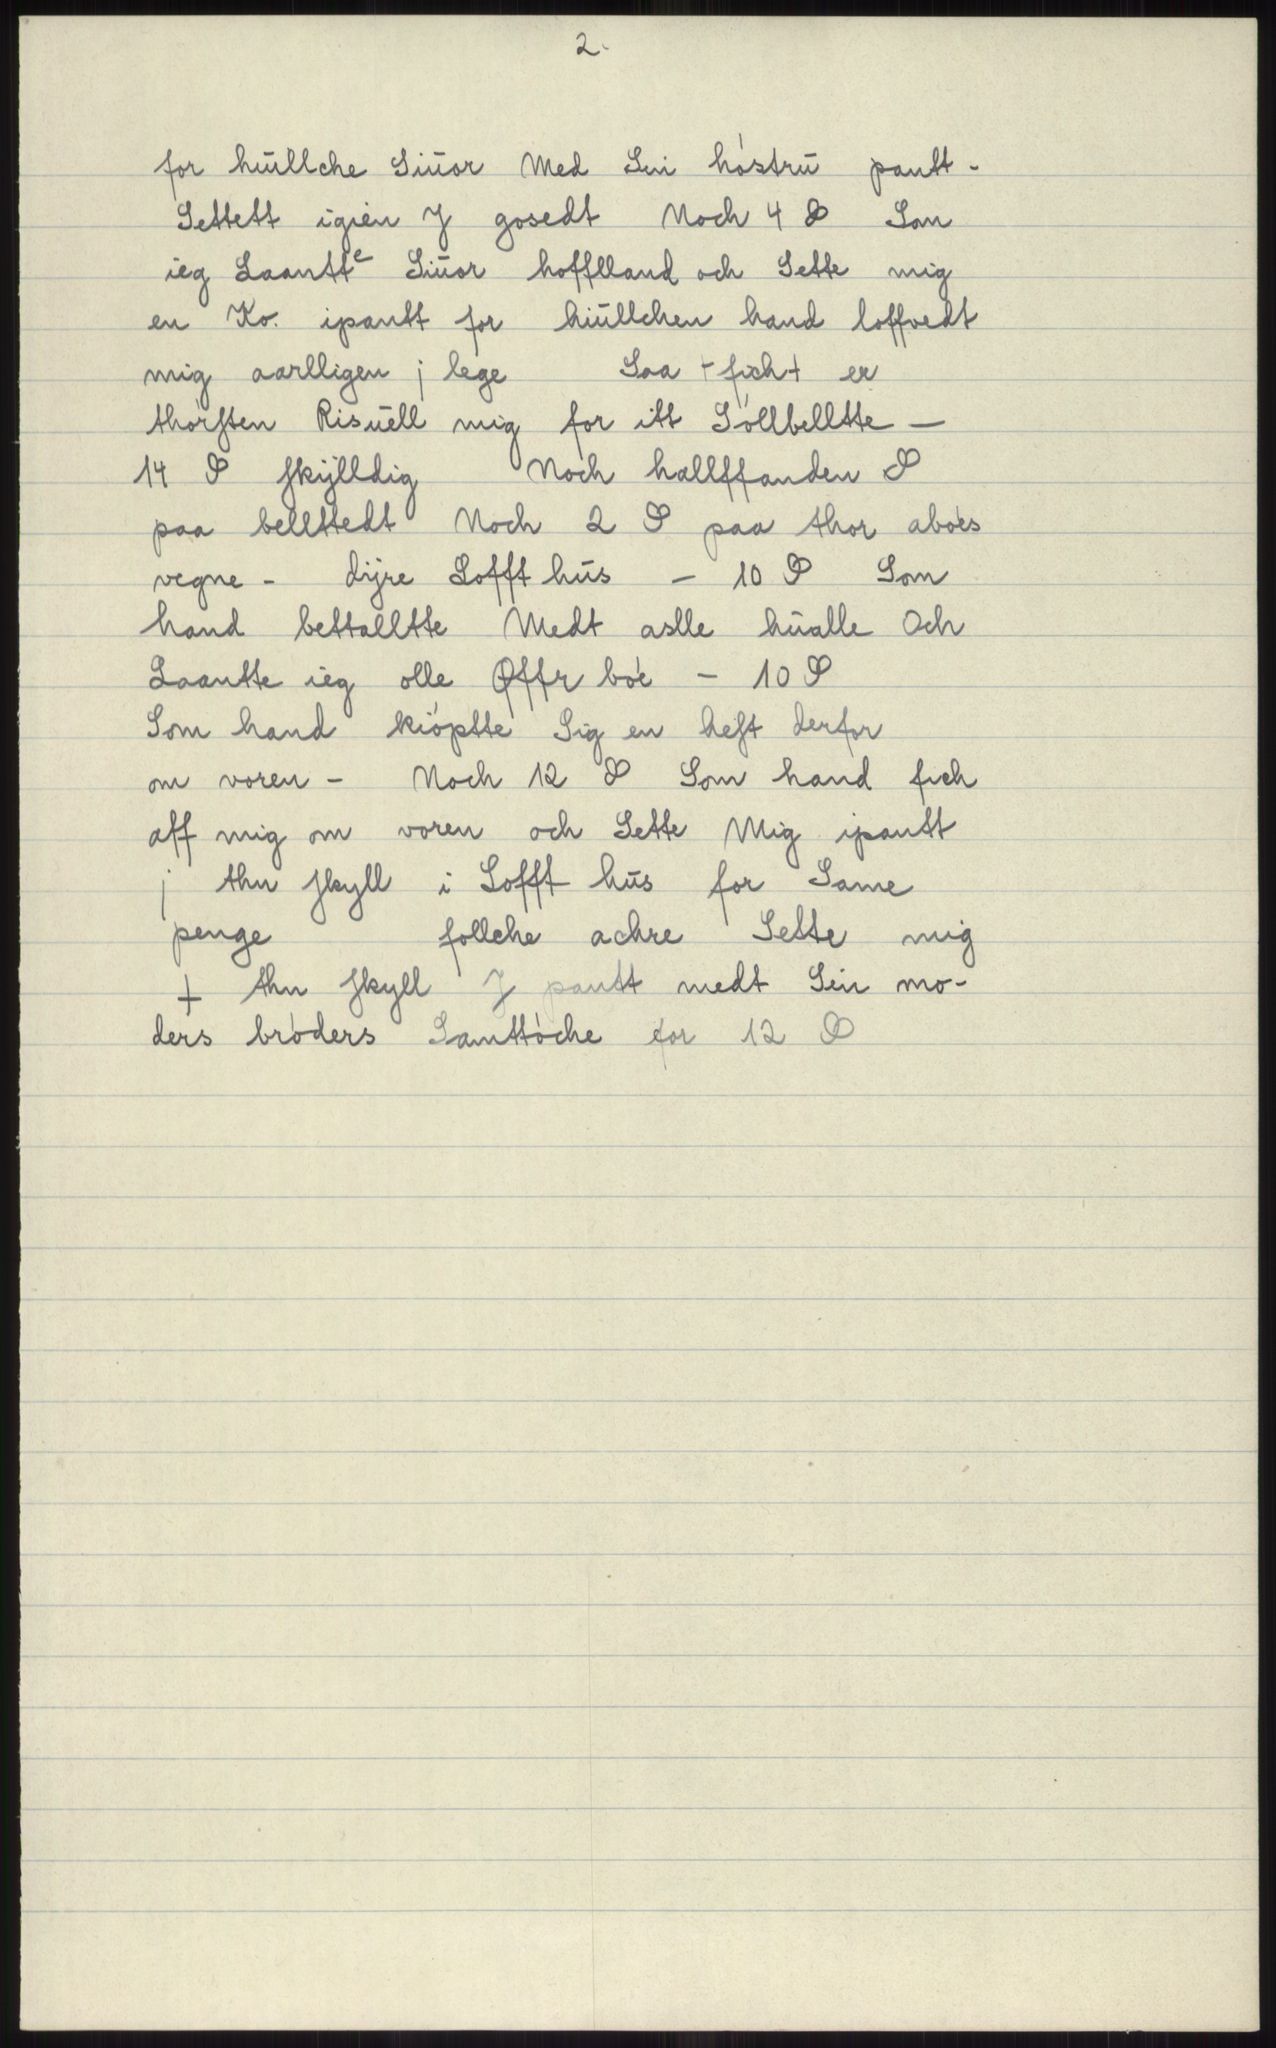 2.
for hūllche Siūor Med Sin hóstrū pantt-
Settett igien J gosedt Noch 4 ₰ Som
ieg Laantte Siūor hofflland och Sette mig
en Ko. ipantt for hiūllchen hand loffvedt
mig aarlligen j lege Saa + fich + er
thórsten Risūell mig for itt Sóllbelltte —
14 ₰ skÿlldig Noch hallffanden ₰
paa bellttedt Noch 2 ₰ paa thor abóes
vegne - dÿre Lofft hūs — 10 ₰ Som
hand bettalltte Medt aslle hūalle Och
Laantte ieg olle Øffr bóe — 10 ₰
Som hand kióptte Sig en hest derfor
om voren - Noch 12 ₰ Som hand fich
aff mig om voren och Sette Mig ipantt
j thn skyll i Lofft hūs for Same
penge follche achre Sette mig
+ thn skyll J pantt medt Sin mo-
ders bróders Samttóche for 12 ₰